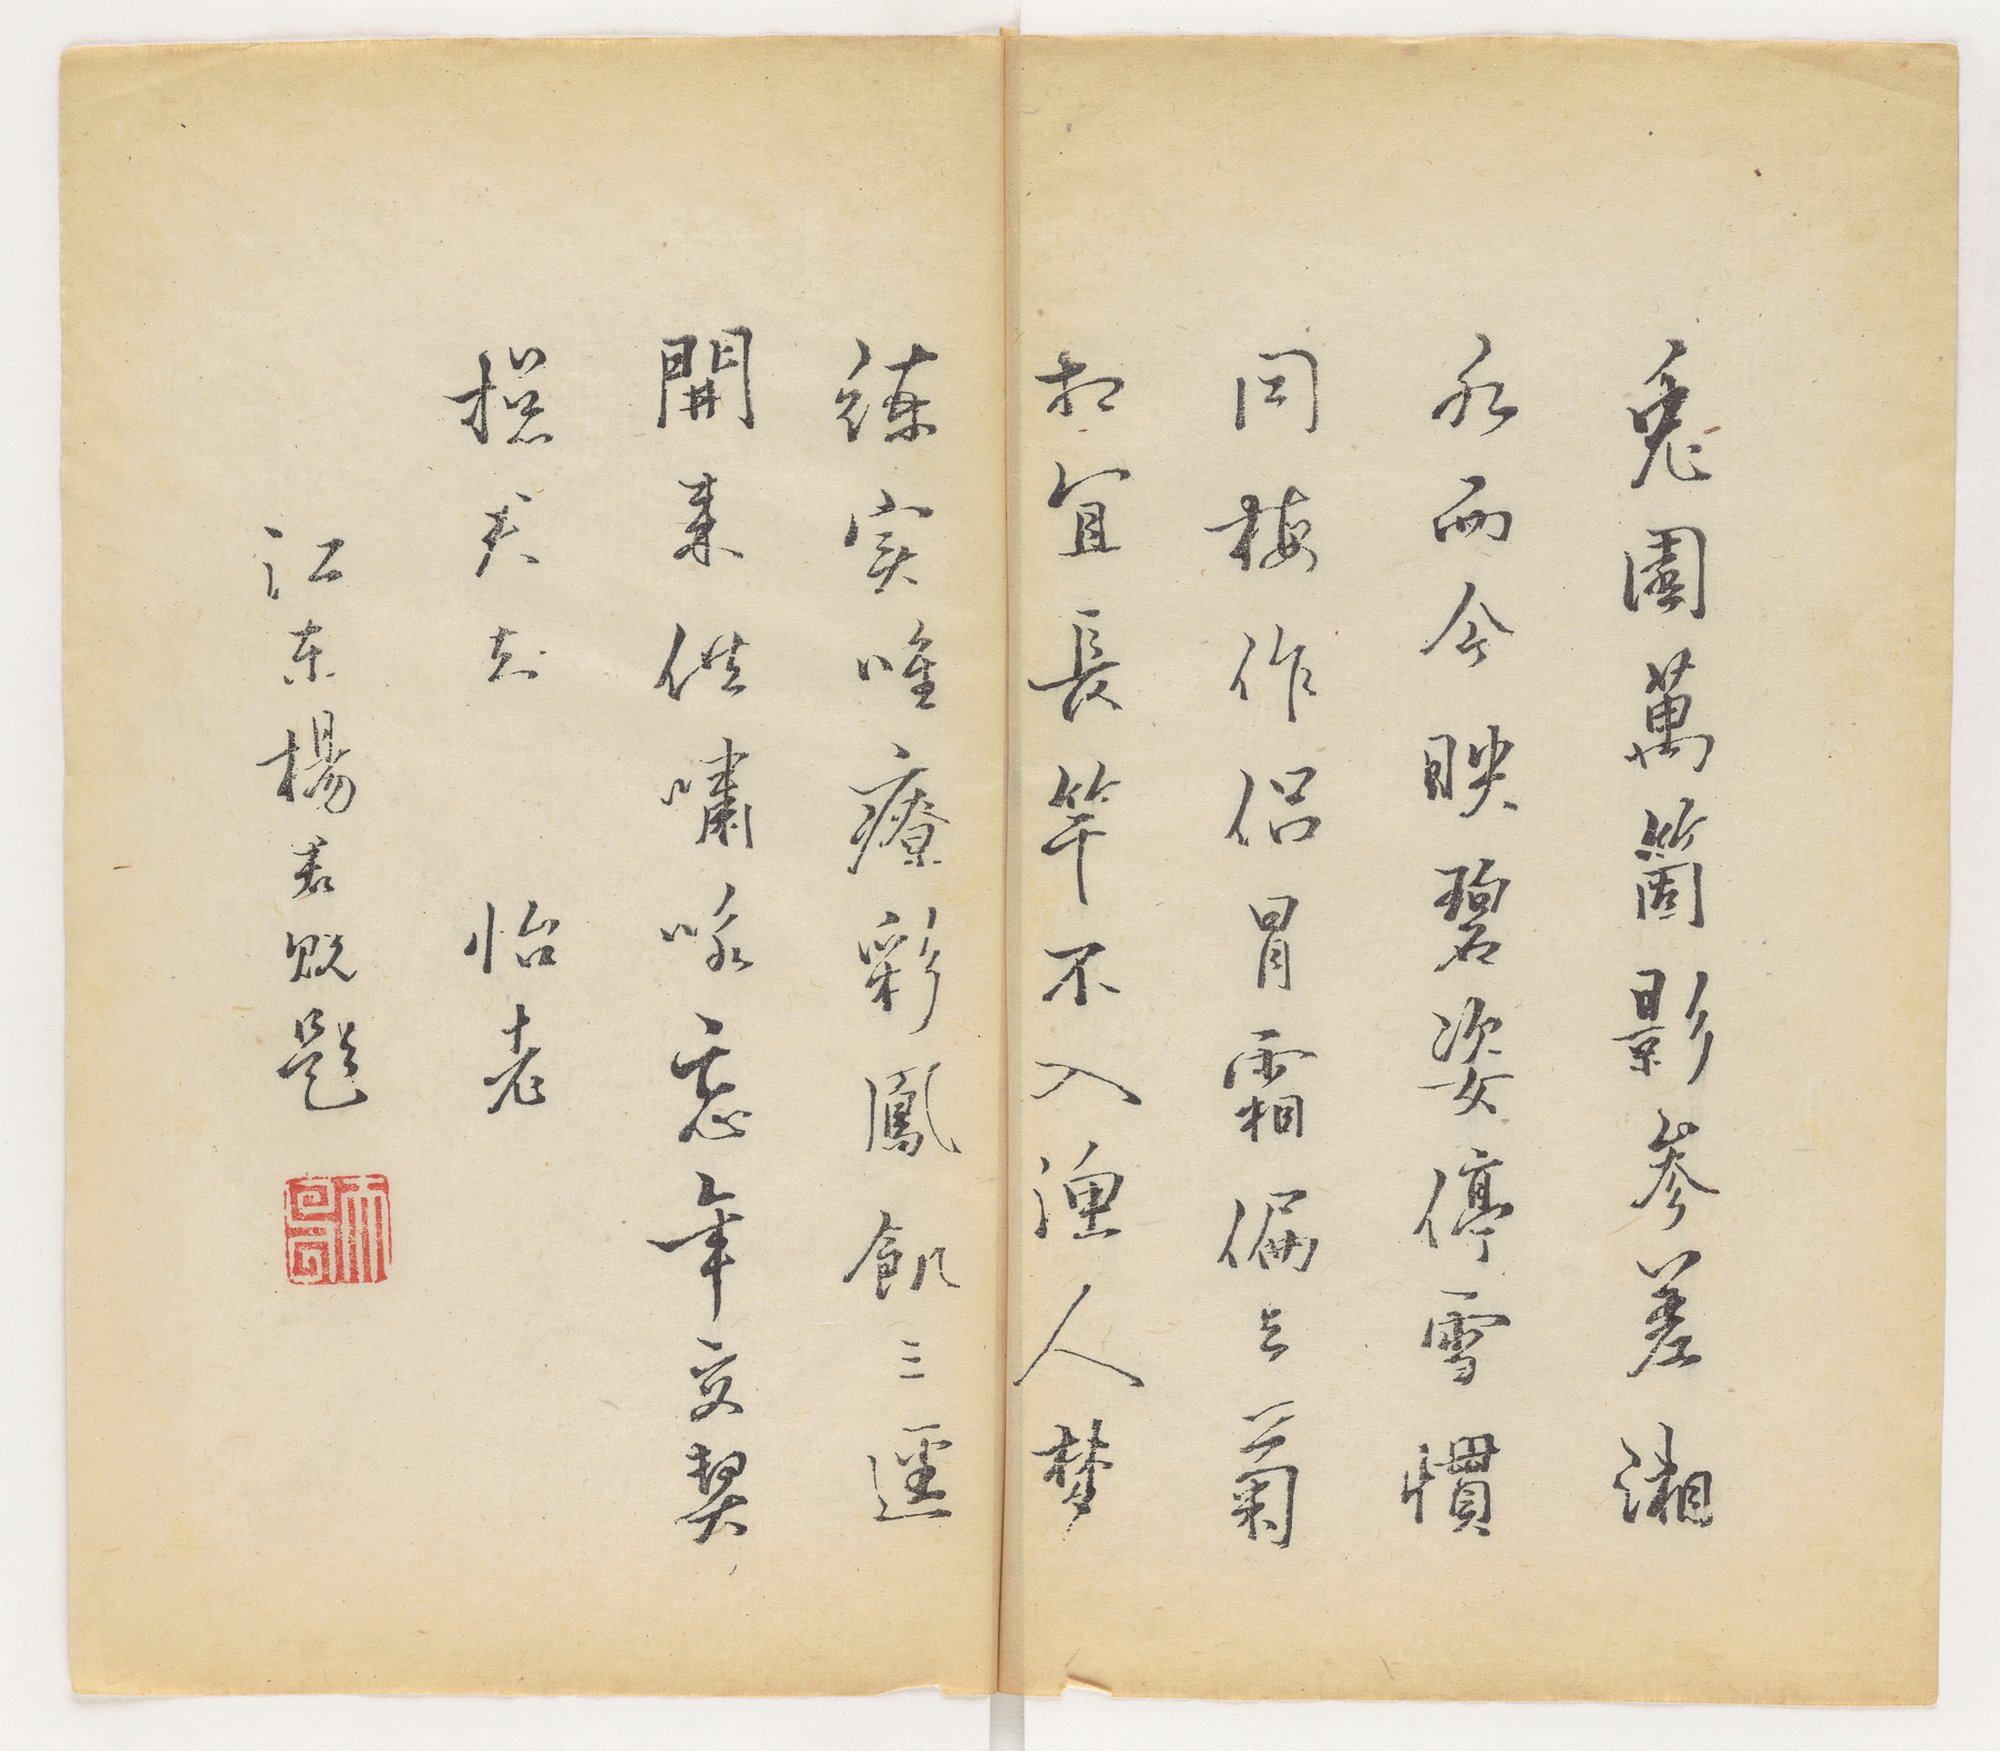 兎園萬箇影參差湘
水而今映碧姿停雪慣
同梅作侶冒霜偏与菊
相宜長竿不入漁人梦
練実唯療彩鳳飢三逕
開来供嘯咏忘年交契
揔知 怡老
江東楊貺題